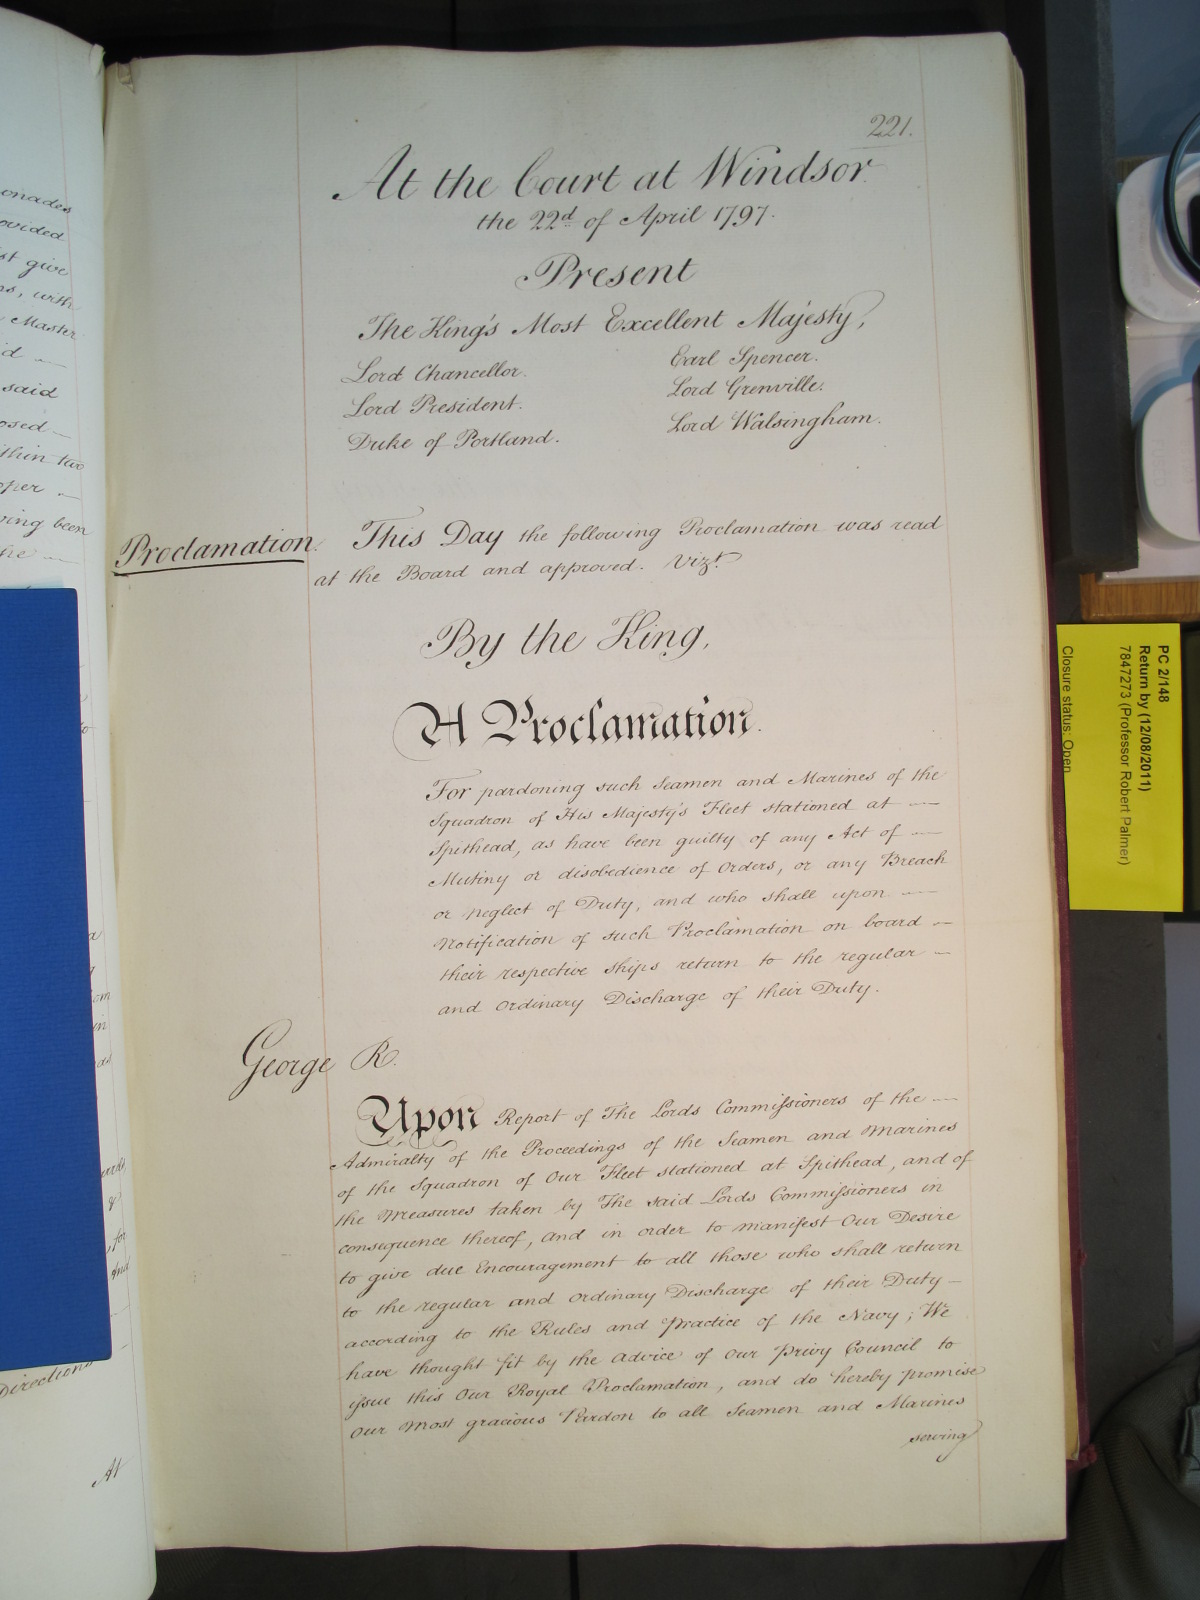 onades
ovided
st give
ns, with
Master
id
said
osed
ithin two
oper
ving been
he
Directions
At
221.
At the Court at Windsor
the 22d of April 1797.
Present
The King's Most Excellent Majesty,
Lord Chancellor.
Lord President.
Duke of Portland.
Earl Spencer.
Lord Grenville.
Lord Walsingham.
Proclamation.
This Day the following Proclamation was read
at the Board and approved. Vizt.
By the King,
A Proclamation.
For pardoning such Seamen and Marines of the
Squadron of His Majesty's Fleet stationed at —
Spithead, as have been guilty of any Act of —
Mutiny or disobedience of Orders, or any Breach
or Neglect of Duty, and who shall upon —
Notification of such Proclamation on board —
their respective ships return to the regular —
and Ordinary Discharge of their Duty.
George R.
Upon Report of The Lords Commissioners of the —
Admiralty of the Proceedings of the Seamen and Marines
of the Squadron of Our Fleet stationed at Spithead, and of
the Measures taken by The said Lords Commissioners in
consequence thereof, And in order to manifest Our Desire
to give due Encouragement to all those who shall return
to the regular and Ordinary Discharge of their Duty —
according to the Rules and Practice of the Navy; We
have thought fit by the Advice of Our Privy Council to
issue this Our Royal Proclamation, and do hereby promise
Our Most gracious Pardon to all Seamen and Marines
serving
PC 2/148
Return by (12/08/2011)
7847273 (Professor Robert Palmer)
Closure status: Open